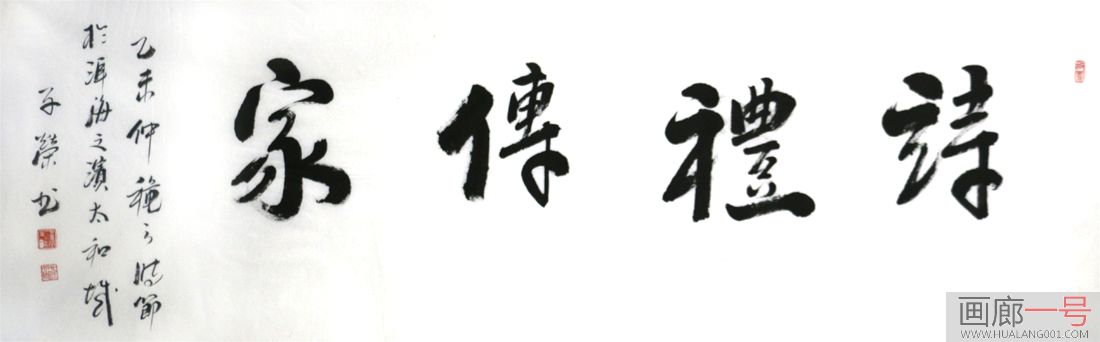 詩禮傳家
乙未仲穐之時節
於洱海之濱太和城
子榮书
画廊一号
WWW.HUALANG001.COM